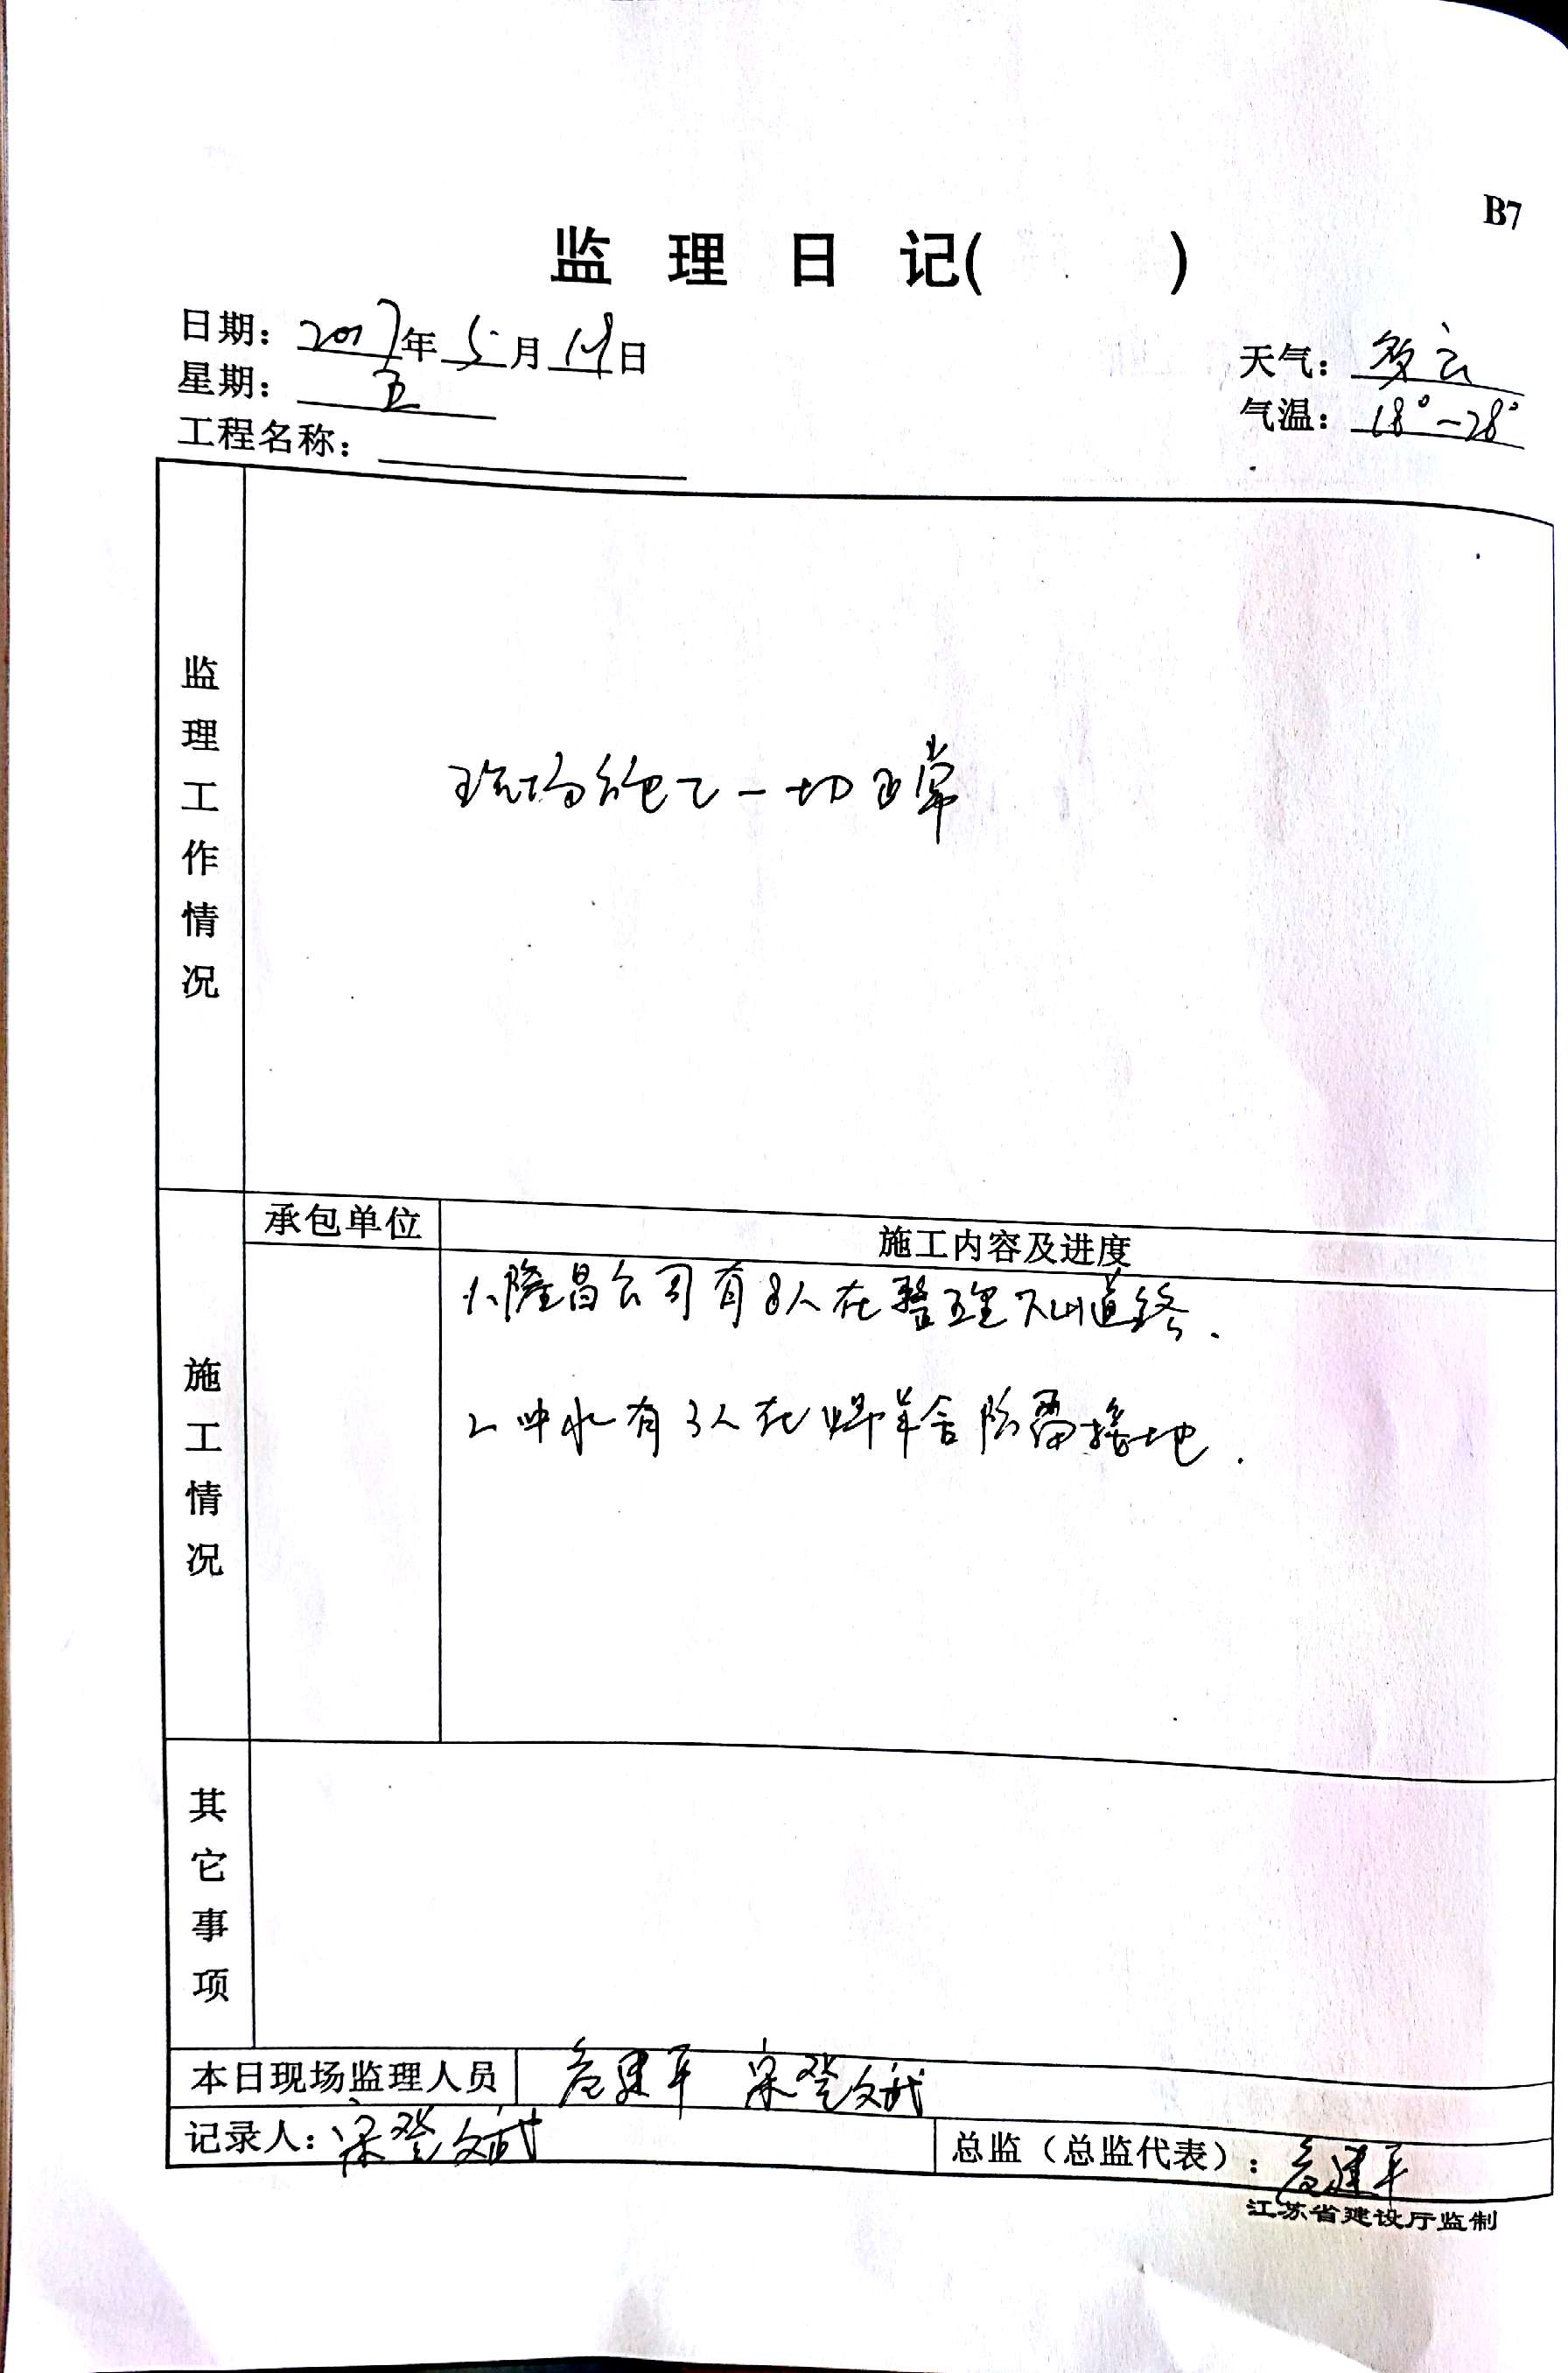 B7
监理日记( )
日期: 2017年5月19日
天气: 多云
星期: 五
气温: 18°-28°
工程名称:
监理工作情况
现场施工一切正常
施工情况
承包单位
施工内容及进度
1、隆昌公司有8人在整理下山道路.
2 中水有3人在焊羊舍防雷接地.
其它事项
本日现场监理人员
建平 宋登武
记录人: 宋登武
总监（总监代表）: 建平
江苏省建设厅监制